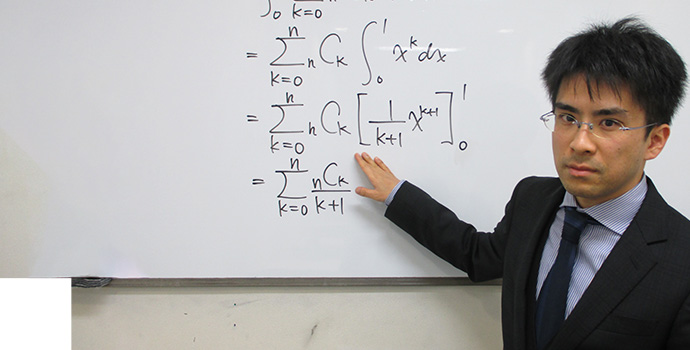 ∫₀ k=0
= Σ_{k=0}^{n} ₙCₖ ∫₀¹ xᵏ dx
= Σ_{k=0}^{n} ₙCₖ [ 1/(k+1) x^{k+1} ]₀¹
= Σ_{k=0}^{n} ₙCₖ/(k+1)